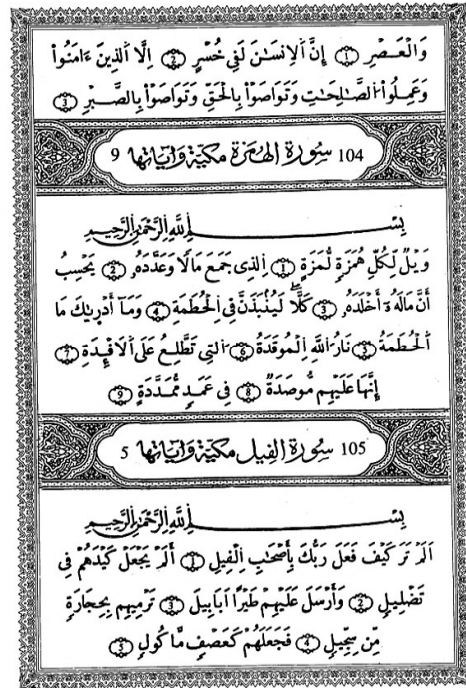 وَالْعَصْرِ ① إِنَّ اَلِانسَٰنَ لَفِي خُسْرٍ ② اِلَّا اَلذِينَ ءَامَنُواْ
وَعَمِلُواْ اُلصَّٰلِحَٰتِ وَتَوَاصَوْاْ بِالْحَقِّ وَتَوَاصَوْاْ بِالصَّبْرِ ③
104 سُورَةُ الهُمَزَة مَكِيَّة وَءَايَاتهَا 9
بِسْـــمِ اِللَّهِ اِلرَّحْمَٰنِ اِلرَّحِيمِ
وَيْلٌ لِّكُلِّ هُمَزَةٍ لُّمَزَةٍ ① اِلذِي جَمَعَ مَالًا وَعَدَّدَهُۥ ② يَحْسِبُ
أَنَّ مَالَهُۥ أَخْلَدَهُۥ ③ كَلَّا لَيُنۢبَذَنَّ فِي اِلْحُطَمَةِ ④ وَمَآ أَدْر۪يٰكَ مَا
اَلْحُطَمَةُ ⑤ نَارُ اُللَّهِ اِلْمُوقَدَةُ ⑥ اُلتِي تَطَّلِعُ عَلَى اَلَافْـِٕدَةِ ⑦
إِنَّهَا عَلَيْهِم مُّوصَدَةٌ ⑧ فِي عَمَدٍ مُّمَدَّدَةٍ ⑨
105 سُورَةُ الفِيل مَكِيَّة وَءَايَاتهَا 5
بِسْـــمِ اِللَّهِ اِلرَّحْمَٰنِ اِلرَّحِيمِ
اَلَمْ تَرَ كَيْفَ فَعَلَ رَبُّكَ بِأَصْحَٰبِ اِلْفِيلِ ① أَلَمْ يَجْعَلْ كَيْدَهُمْ فِي
تَضْلِيلٍ ② وَأَرْسَلَ عَلَيْهِمْ طَيْرًا اَبَابِيلَ ③ تَرْمِيهِم بِحِجَارَةٍ
مِّن سِجِّيلٍ ④ فَجَعَلَهُمْ كَعَصْفٍ مَّاكُولٍ ⑤